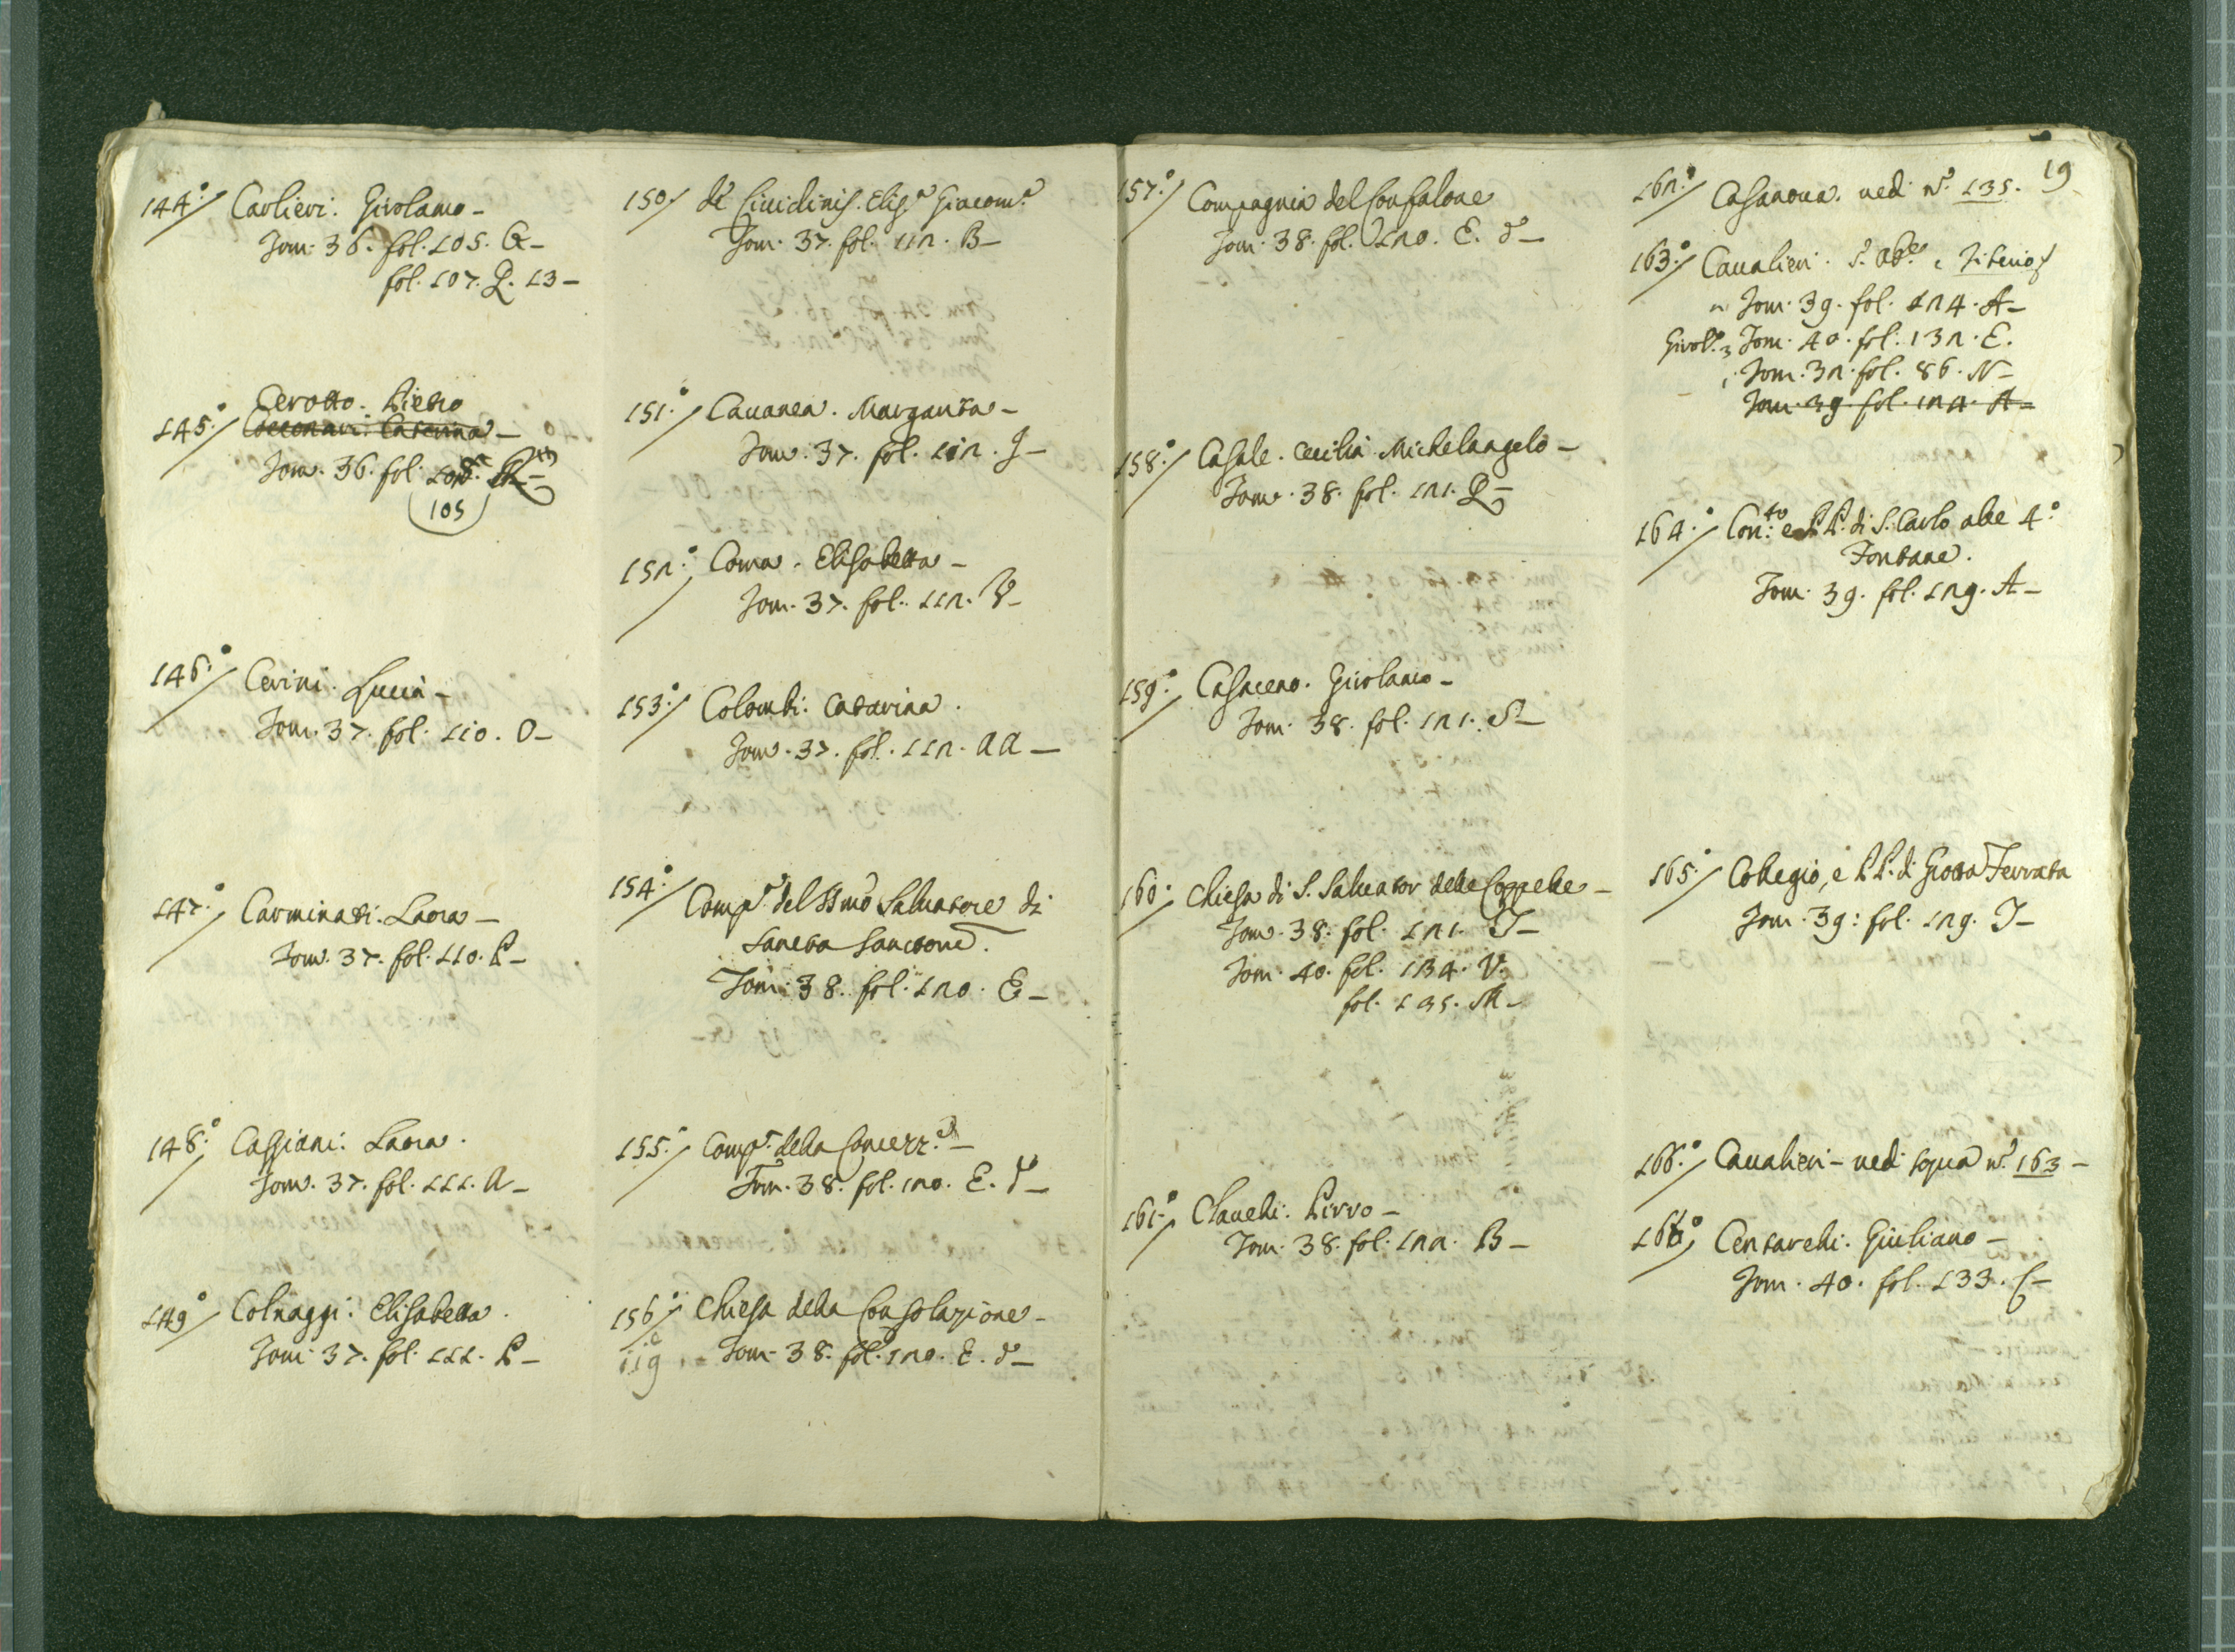 144.° Carlieri. Girolamo -
Tom. 36. fol. 105. G -
fol. 107. P. 13 -
Cerotto. Pietro
145.° Cecconari. Caterina -
Tom. 36. fol.
105
146.° Cerini. Lucia -
Tom. 37. fol. 110. O -
147.° Carminati. Laora -
Tom. 37. fol. 110. P -
148.° Cassiani. Laora.
Tom. 37. fol. 111. A -
149.° Colnaggi. Elisabetta.
Tom. 37. fol. 111. P -
150. de Ciuidinis. Elis.a Giacom.a
Tom. 37. fol. 112. B -
151.° Cauanea. Margarita -
Tom. 37. fol. 112. J -
152.° Coma. Elisabetta -
Tom. 37. fol. 112. V -
153.° Colombi. Catarina.
Tom. 37. fol. 112. AA -
154.° Comp.a del SSmo Saluatore di
Sancta Sanctorum.
Tom. 38. fol. 120. E -
155.° Comp.a della Concezz.e -
Tom. 38. fol. 120. E. d -
156.° Chiesa della Consolazione -
119 Tom. 38. fol. 120. E. d -
157.° Compagnia del Confalone
Tom. 38. fol. 120. E. d -
158.° Casale. Cecilia. Michelangelo -
Tom. 38. fol. 121. Q -
159.° Casaceno. Girolamo -
Tom. 38. fol. 121. S -
160. Chiesa di S. Saluator delle Coppelle -
Tom. 38. fol. 121. T -
Tom. 40. fol. 134. V.
fol. 135. M -
161.° Clauelli. Pirro -
Tom. 38. fol. 122. B -
19
162.° Casanoua. uedi n.° 135.
163.° Caualieri.
2 Tom. 39. fol. 124. A -
Girol.o 3 Tom. 40. fol. 132. E.
1 Tom. 32. fol. 86. N -
Tom. 39. fol. 124. A -
164.° Con.to e PP. di S. Carlo alle 4.°
Fontane.
Tom. 39. fol. 129. A -
165.° Collegio, e PP. di Grotta Ferrata
Tom. 39. fol. 129. T -
166.° Caualieri - uedi sopra n.° 163 -
166.° Centarelli. Giuliano -
Tom. 40. fol. 133. C -